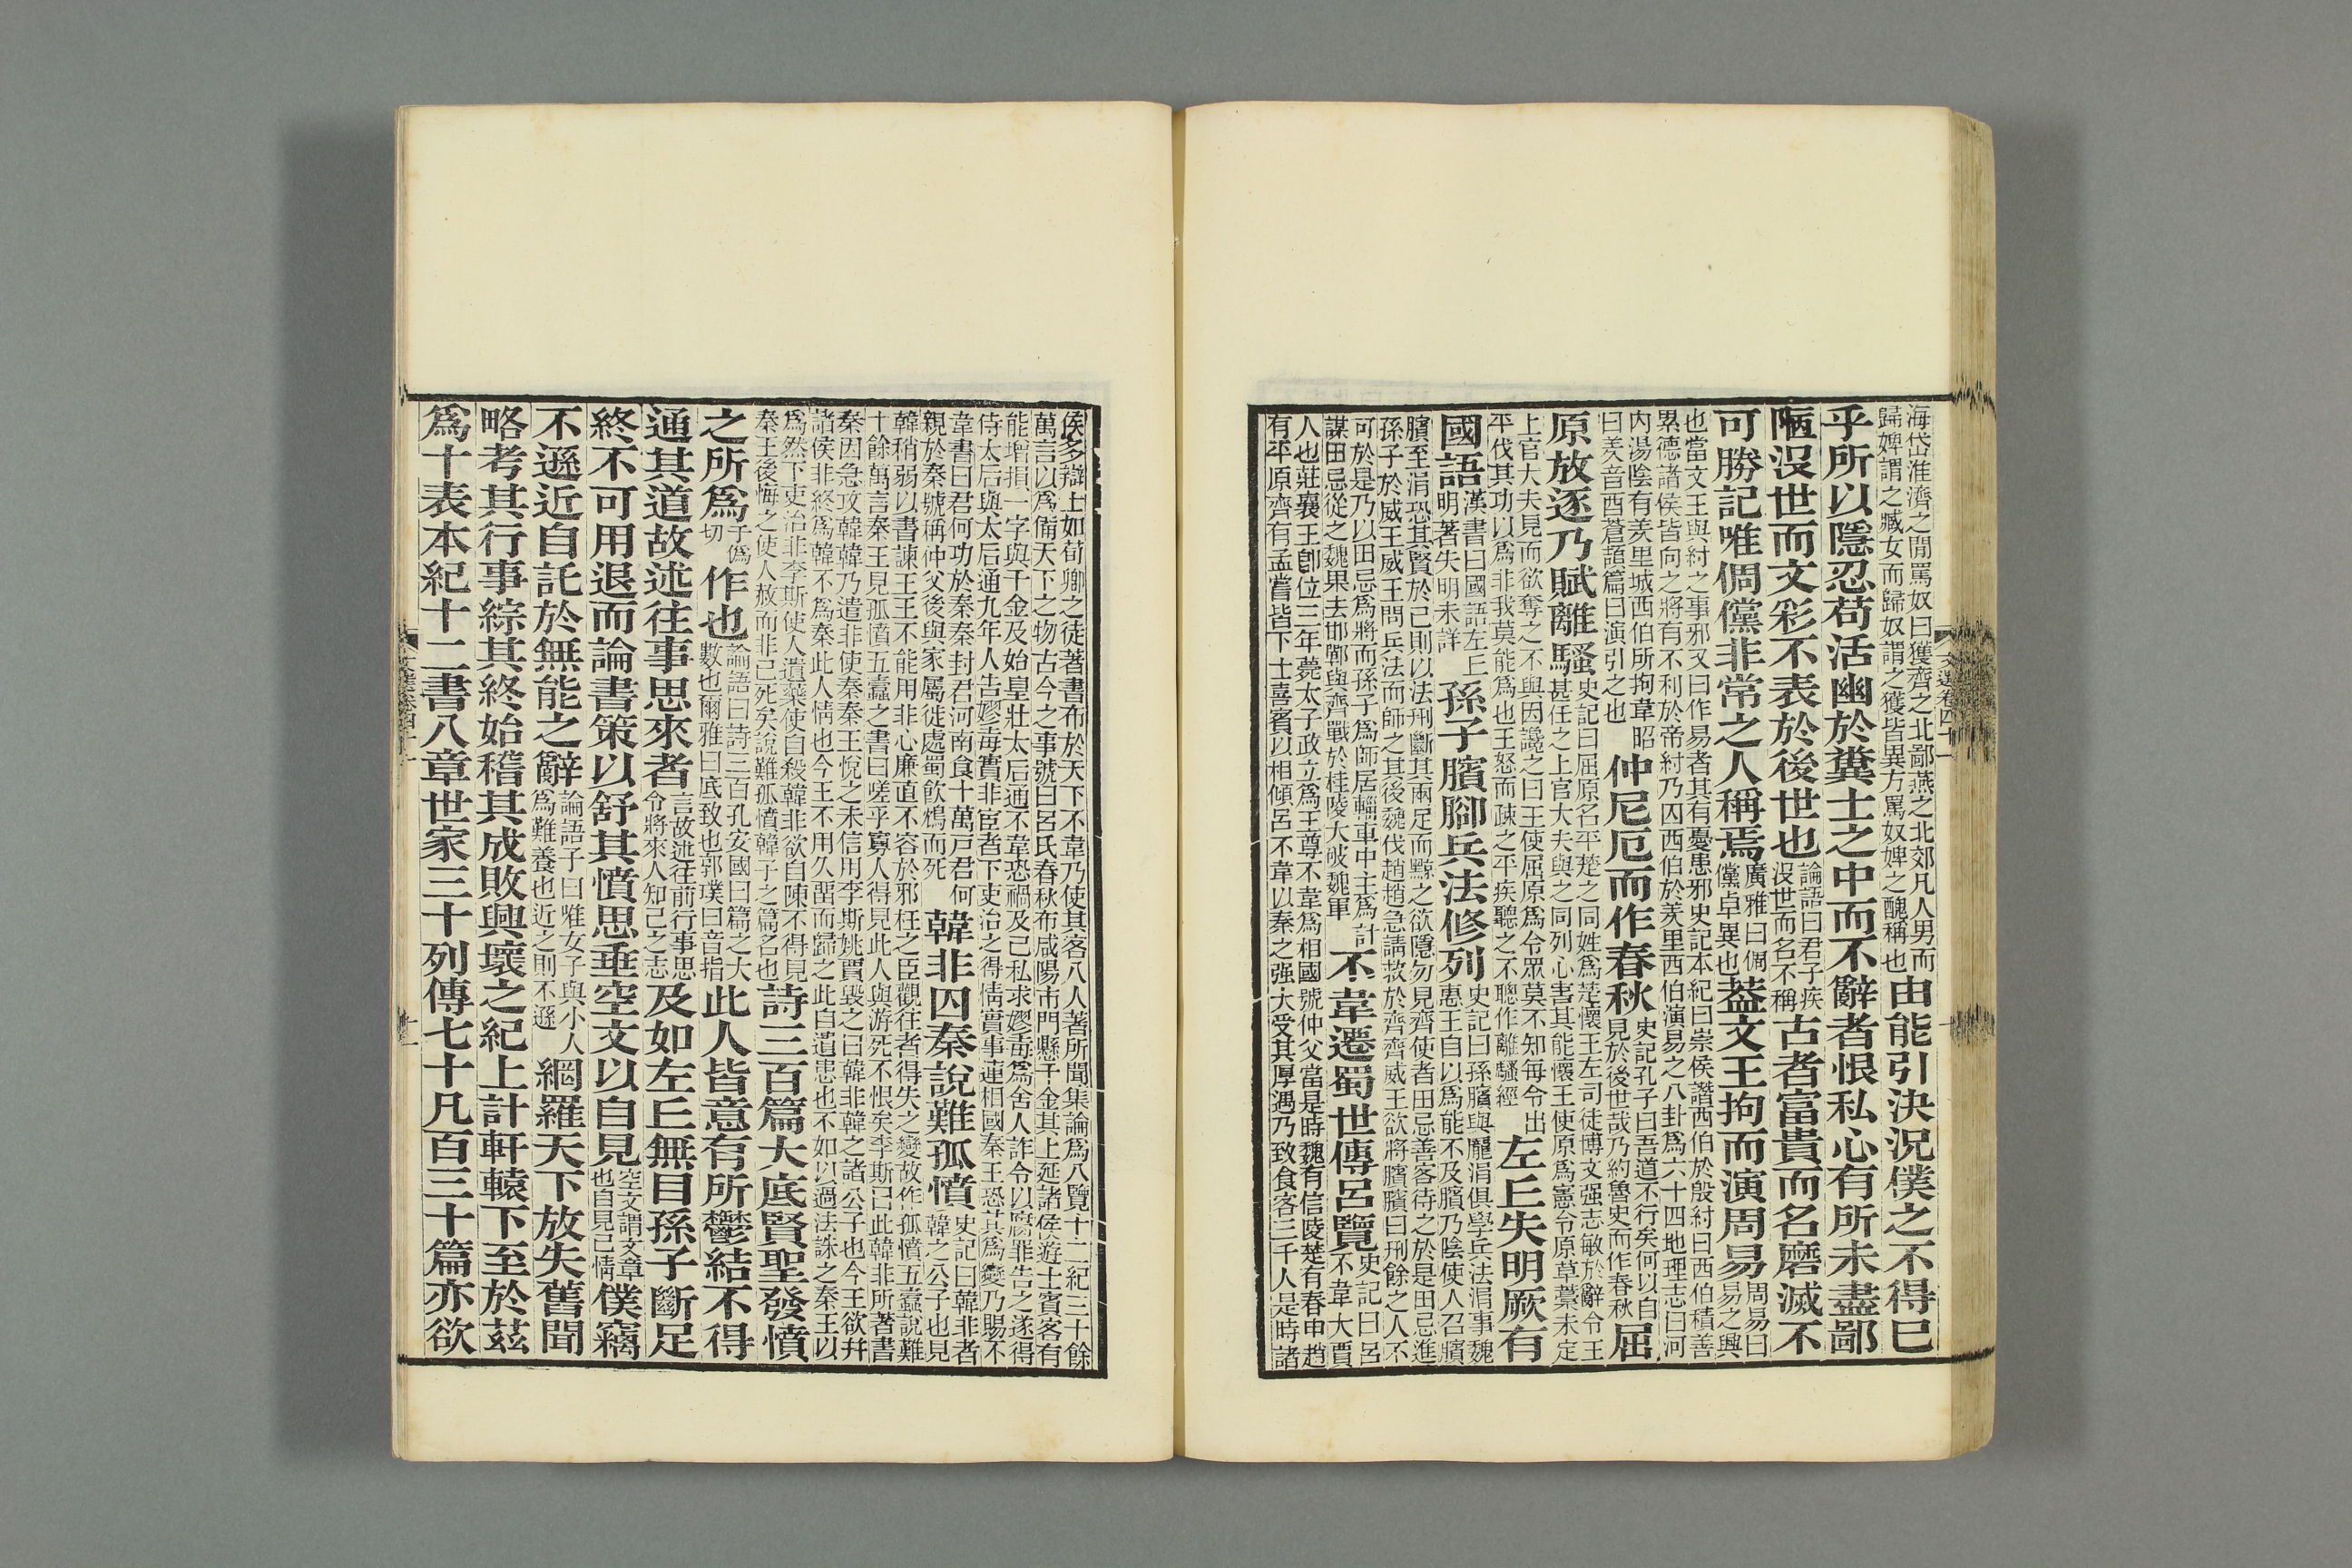 海岱淮濟之閒罵奴曰獲齊之北鄙燕之北郊凡人男而
歸婢謂之臧女而歸奴謂之獲皆異方罵奴婢之醜稱也
由能引決況僕之不得已
乎所以隱忍苟活幽於糞土之中而不辭者恨私心有所未盡鄙
陋沒世而文彩不表於後世也
論語曰君子疾
沒世而名不稱
古者富貴而名磨滅不
可勝記唯倜儻非常之人稱焉
廣雅曰倜
儻卓異也
葢文王拘而演周易
周易曰
易之興
也當文王與紂之事邪又曰作易者其有憂患邪史記本紀曰崇侯譖西伯於殷紂曰西伯積善
累德諸侯皆向之將有不利於帝紂乃囚西伯於羑里西伯演易之八卦爲六十四地理志曰河
内湯陰有羑里城西伯所拘韋昭
曰羑音酉蒼頡篇曰演引之也
仲尼厄而作春秋
史記孔子曰吾道不行矣何以自
見於後世哉乃約魯史而作春秋
屈
原放逐乃賦離騷
史記曰屈原名平楚之同姓爲楚懷王左司徒博文强志敏於辭令王
甚任之上官大夫與之同列心害其能懷王使原爲憲令原草藁未定
上官大夫見而欲奪之不與因讒之曰王使屈原爲令眾莫不知每令出
平伐其功以爲非我莫能爲也王怒而疎之平疾聽之不聰作離騷經
左丘失明厥有
國語
漢書曰國語左丘
明著失明未詳
孫子臏腳兵法修列
史記曰孫臏與龐涓俱學兵法涓事魏
惠王自以爲能不及臏乃陰使人召臏
臏至涓恐其賢於己則以法刑斷其兩足而黥之欲隱勿見齊使者田忌善客待之於是田忌進
孫子於威王威王問兵法而師之其後魏伐趙趙急請救於齊齊威王欲將臏臏曰刑餘之人不
可於是乃以田忌爲將而孫子爲師居輜車中主爲計
謀田忌從之魏果去邯鄲與齊戰於桂陵大破魏軍
不韋遷蜀世傳呂覽
史記曰呂
不韋大賈
人也莊襄王卽位三年薨太子政立爲王尊不韋爲相國號仲父當是時魏有信陵楚有春申趙
有平原齊有孟嘗皆下士喜賓以相傾呂不韋以秦之强大受其厚遇乃致食客三千人是時諸
文選卷四十一
侯多辯士如荀卿之徒著書布於天下不韋乃使其客人人著所聞集論爲八覽十二紀三十餘
萬言以爲備天下之物古今之事號曰呂氏春秋布咸陽市門懸千金其上延諸侯遊士賓客有
能增損一字與千金及始皇壯太后通不韋恐禍及己私求嫪毐爲舍人詐令以腐罪告之遂得
侍太后與太后通九年人告嫪毐實非臣者下吏治之得情實事連相國秦王恐其爲變乃賜不
韋書曰君何功於秦秦封君河南食十萬戶君何
親於秦號稱仲父後與家屬徙處蜀飲鴆而死
韓非囚秦說難孤憤
史記曰韓非者
韓之公子也見
韓稍弱以書諫王王不能用非心廉直不容於邪枉之臣觀往者得失之變故作孤憤五蠹說難
十餘萬言秦王見孤憤五蠹之書曰嗟乎寡人得見此人與游死不恨矣李斯曰此韓非所著書
秦因急攻韓韓乃遣非使秦秦王悅之未信用李斯姚賈毀之曰韓非韓之諸公子也今王欲幷
諸侯非終爲韓不爲秦此人情也今王不用久畱而歸之此自遺患也不如以過法誅之秦王以
爲然下吏治非李斯使人遺藥使自殺韓非欲自陳不得見
秦王後悔之使人赦而非已死矣說難孤憤韓子之篇名也
詩三百篇大底賢聖發憤
之所爲
子僞
切
作也
論語曰詩三百孔安國曰篇之大
數也爾雅曰底致也郭璞曰音指
此人皆意有所鬱結不得
通其道故述往事思來者
言故述往前行事思
令將來人知己之志
及如左丘無目孫子斷足
終不可用退而論書策以舒其憤思垂空文以自見
空文謂文章
也自見己情
僕竊
不遜近自託於無能之辭
論語子曰唯女子與小人
爲難養也近之則不遜
網羅天下放失舊聞
略考其行事綜其終始稽其成敗興壞之紀上計軒轅下至於茲
爲十表本紀十二書八章世家三十列傳七十凡百三十篇亦欲